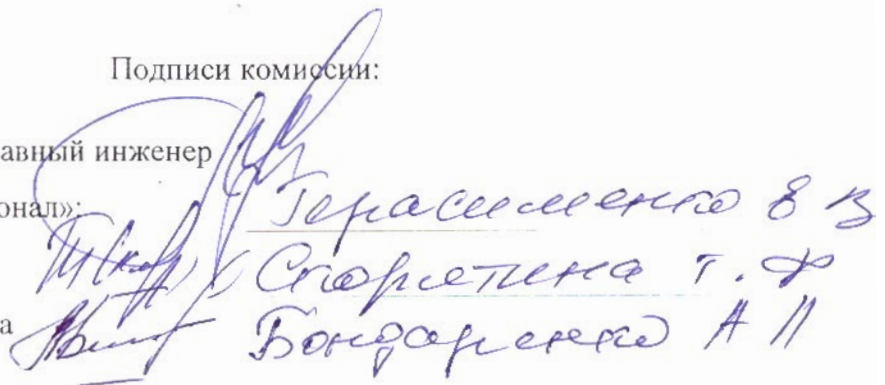 Подписи комиссии:
авный инженер
онал»: Герасименко Е В
Скорятина Т. Ф
а Бондаренко А П